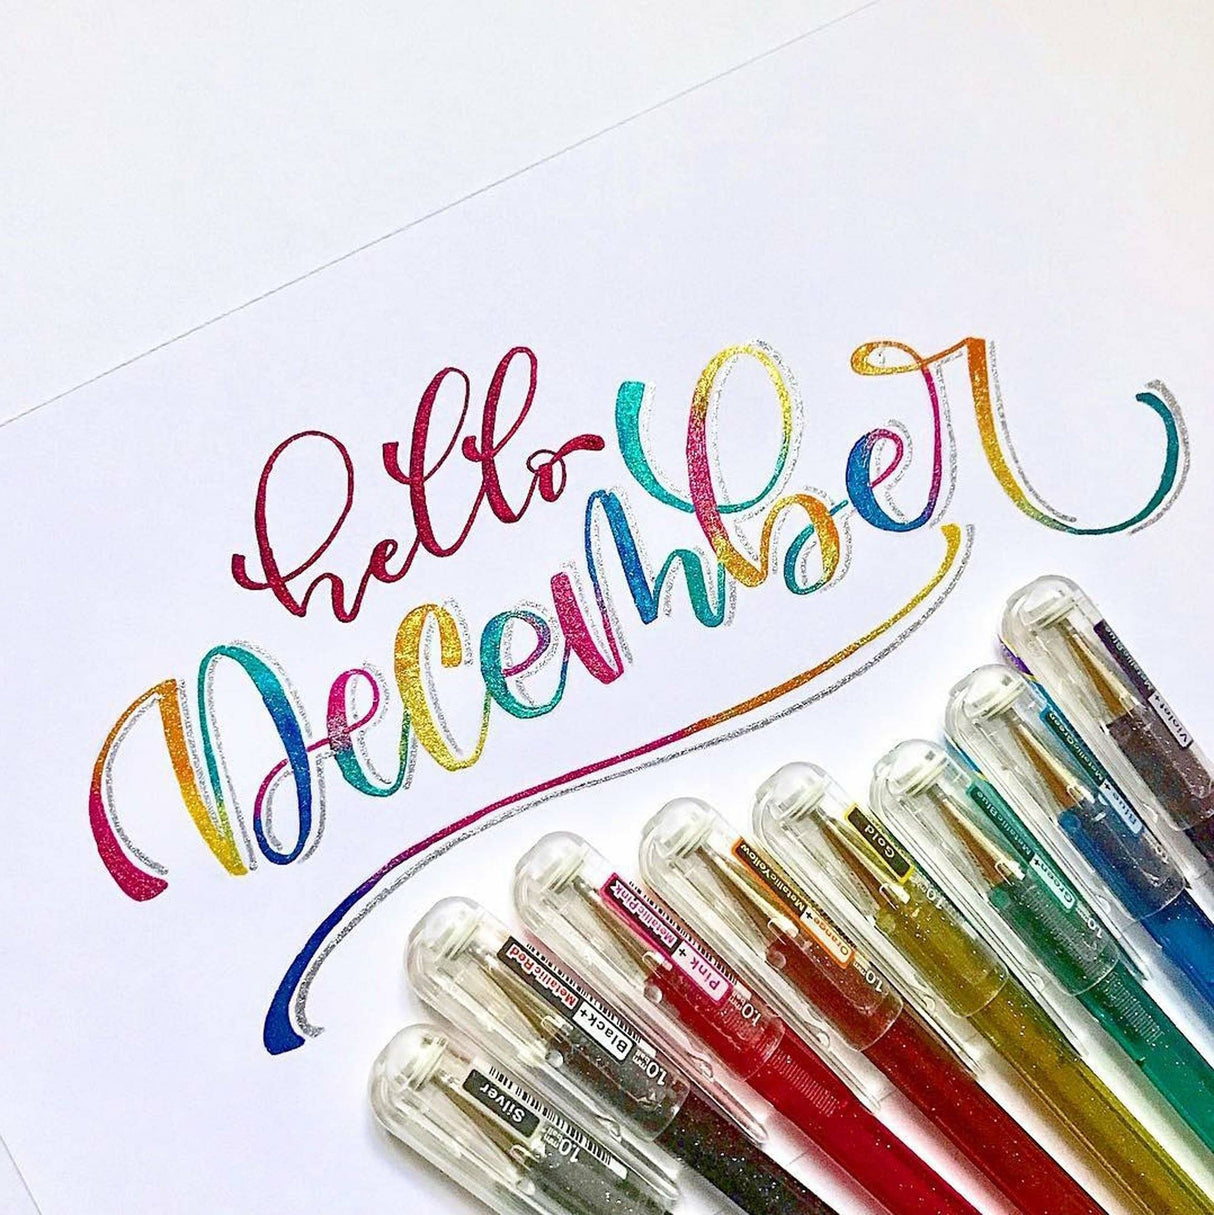 hello
December
Silver 1.0
Black+ MetallicRed 1.0
Pink + MetallicPink 1.0
Orange+MetallicYellow 1.0
Gold 1.0
Green+ MetallicBlue 1.0
Blue+ MetallicGreen
Violet+